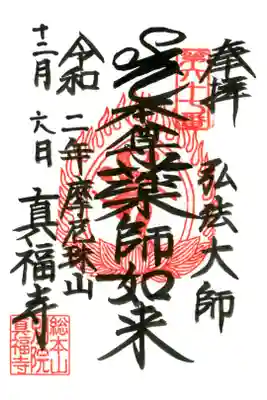 奉拝
弘法大師
第六十七番
本尊薬師如来
摩尼珠山
真福寺
令和二年
十二月六日
総本山
別院
真福寺